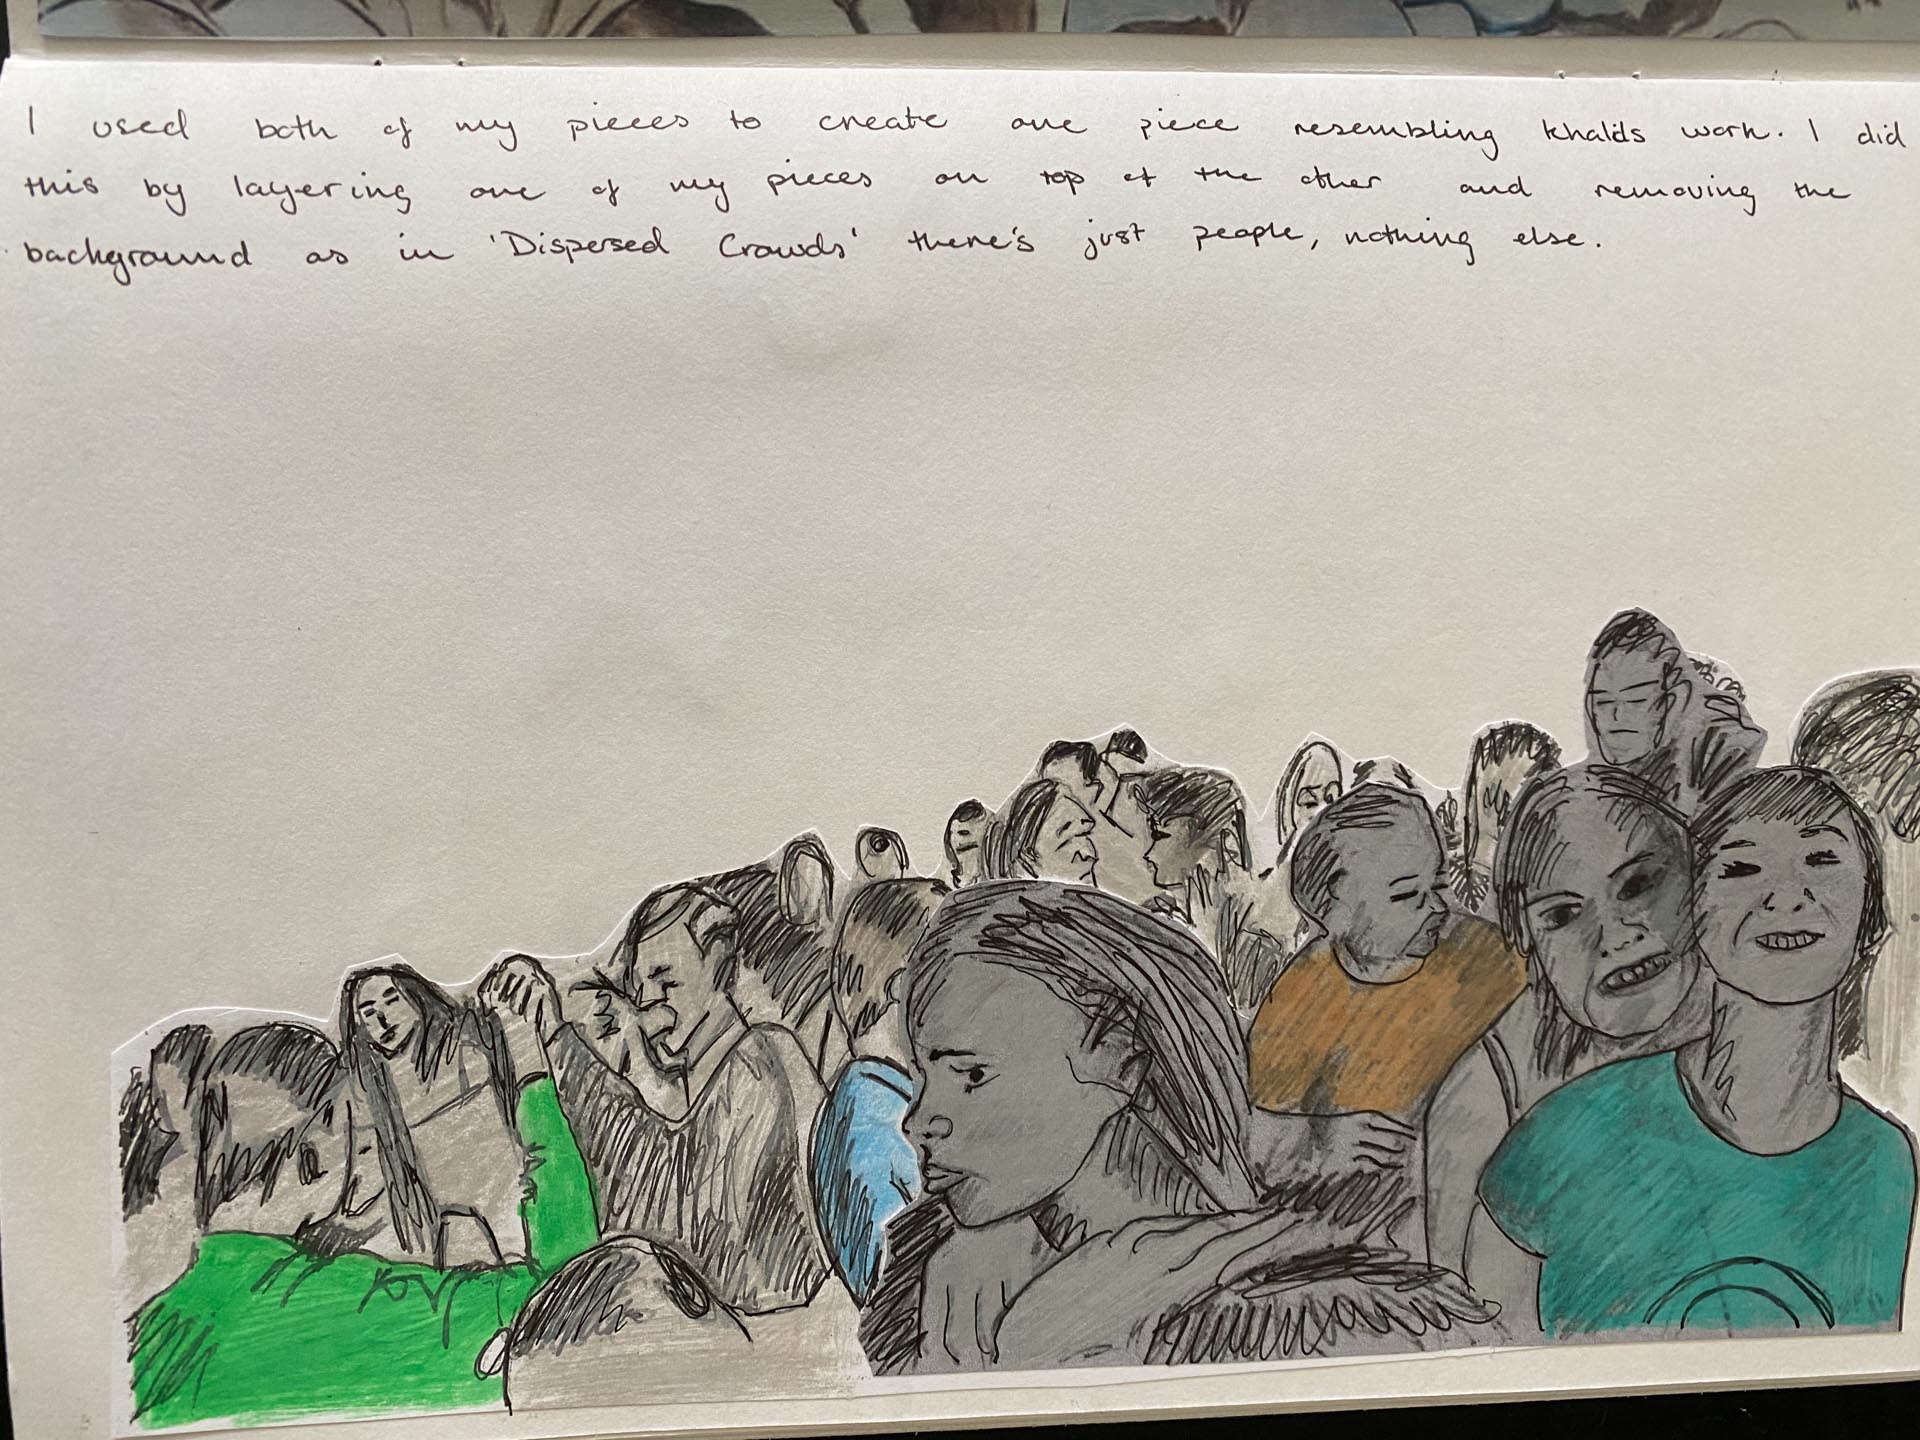 I used both of my pieces to create one piece resembling Khalds work. I did
this by layering one of my pieces on top of the other and removing the
background as in 'Dispersed Crowds' there's just people, nothing else.